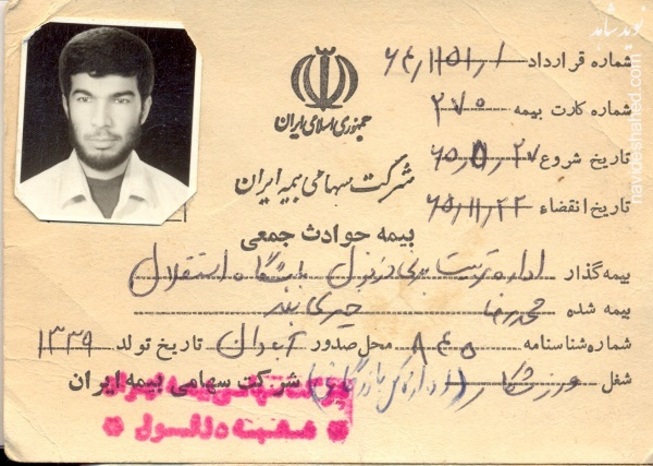 نوید شاهد
navideshahed.com
جمهوری اسلامی ایران
شرکت سهامی بیمه ایران
بیمه حوادث جمعی
شماره قرارداد ۶۴٫۱۱۵۱٫۱
شماره کارت بیمه ۲۷۰
تاریخ شروع ۶۵٫۵٫۲۷
تاریخ انقضاء ۶۵٫۱۱٫۲۲
بیمه گذار اداره تربیت بدنی دزفول باشگاه استقلال
بیمه شده محمدرضا
شماره شناسنامه ۸۴۵ محل صدور آبادان تاریخ تولد ۱۳۳۹
شغل ورزشکار (اداره کل بازرگانی) شرکت سهامی بیمه ایران
شرکت سهامی بیمه ایران
شعبه دزفول